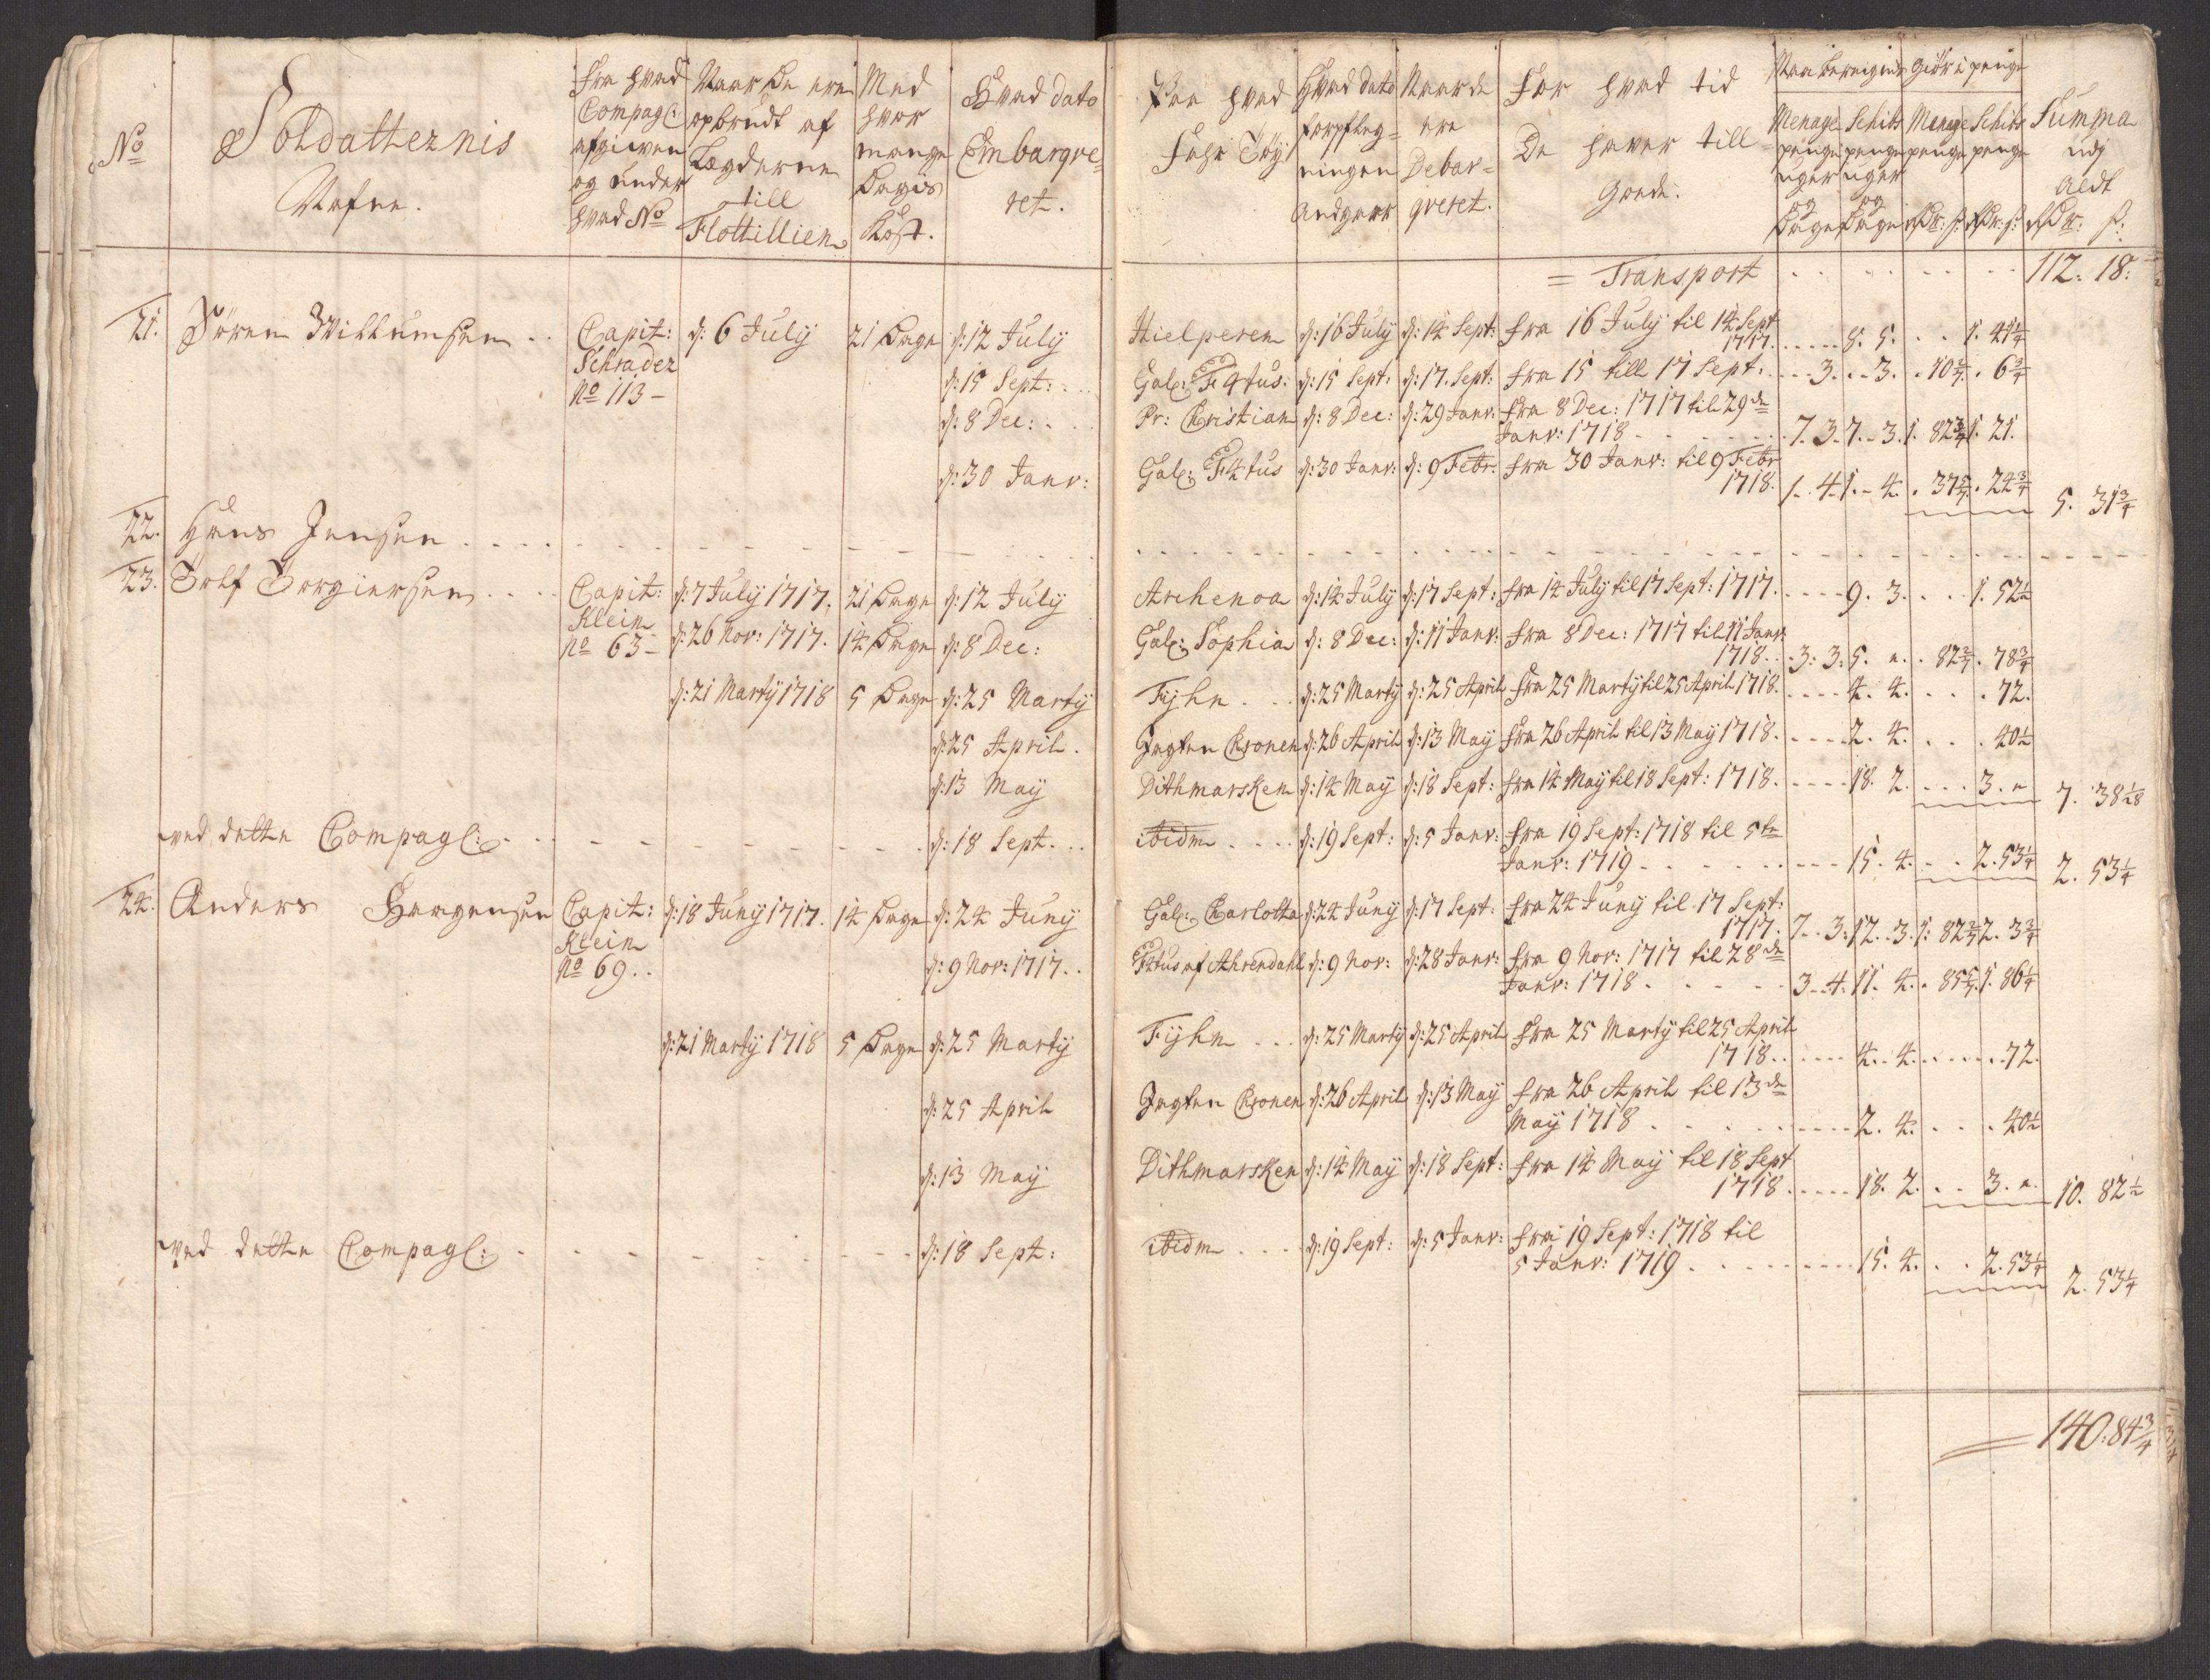 No
Soldatternis
Nafne.
fra hvad
Compagl:
afgiwen
og under
hvad No
Naar De ere
opbrudt af
Lægderne
till
Flottillien
Med
hvor
mange
Dagis
Kost.
Hvad dato
Embarqve-
ret.
21. Sören Willumsen .. Capit: d: 6 July 21 Dage d: 12 July
Schrader d: 15 Sept: ..
No 113 - d: 8 Dec: ..
d: 30 Janv:
22. Hans Jensen ....
23. Tolf Torgiersen .... Capit: d: 7 July 1717. 21 Dage d: 12 July
Klein
No 63 - d: 26 Nov: 1717. 14 Dage d: 8 Dec:
d: 21 Marty 1718 5 Dage d: 25 Marty
d: 25 April.
d: 13 May
ved dette Compagl: ... d: 18 Sept. ..
24. Anders Haagensen Capit: d: 18 Juny 1717. 14 Dage d: 24 Juny
Klein
No 69 .. d: 9 Nov: 1717 ..
d: 21 Marty 1718 5 Dage d: 25 Marty
d: 25 April
d: 13 May
ved dette Compagl: ... d: 18 Sept:
Paa hvad
Fahr Töÿ
Hvad Dato
forpfleg=
ningen
Andgaar
Naar de
ere
Debar=
qveret.
For hvad tid
De haver till
Gode.
Naar beregnis Giör i penge
Menage
penge
uger
og
Dage
Schibs
penge
uger
og
Dage
Menage
penge
rdr: s:
Schibs
penge
rdr: s:
Summa
udj
Aldt
rdr: s:
= Transport ...... 112. 18:
Hielperen d: 16 July d: 14 Sept: fra 16 July til 14 Sept
1717. ..... 8. 5. .. 1. 41¼
Gal: F4tus: d: 15 Sept: d: 17. Sept: fra 15 till 17 Sept: ... 3. .. 3. . 10 2/7. . 6¾
Pr: Christian d: 8 Dec: d: 29 Janv: fra 8 Dec: 1717 til 29de
Janv: 1718 ...... 7. 3. 7. 3. 1. 82 2/7 1. 21.
Gal: F4tus d: 30 Janv: d: 9 Febr: fra 30 Janv: til 9 Febr
1718. 1. 4. 1. 4. . 37 5/7. . 24¾ 5. 31¾
Archenoa d: 14 July d: 17 Sept: fra 14 July til 17 Sept: 1717. .... 9. 3. ... 1. 52½
Gal: Sophia d: 8 Dec: d: 11 Janv: fra 8 Dec: 1717 til 11 Janv:
1718 .. 3: 3: 5. ". . 82 2/7. 78¾
Fyhn .. d: 25 Marty d: 25 April fra 25 Marty til 25 April 1718. .... 4. 4. ... 72.
Jagten Cronen d: 26 April d: 13 May fra 26 April til 13 May 1718. .... 2. 4. ... 40½
Dithmarsken d: 14 May d: 18 Sept: fra 14 May til 18 Sept: 1718. .... 18. 2. ... 3. " 7. 38
ibidm .... d: 19 Sept: d: 5 Janv: fra 19 Sept: 1718 til 5te
Janv: 1719 ........ 15. 4. .. 2. 53¼ 2. 53¼
Gal: Charlotta d: 24 Juny d: 17 Sept: fra 24 Juny til 17 Sept:
1717. 7. 3: 12. 3. 1: 82 2/7 2. 3¾
F4tus af Ahrendahl d: 9 Nov: d: 28 Janv: fra 9 Nov: 1717 til 28de
Janv: 1718 ..... 3. 4. 11. 4. . 85 5/7. 1. 86¼
Fyhn ... d: 25 Marty d: 25 April fra 25 Marty til 25 April
1718 ...... 4. 4. ..... 72.
Jagten Cronen d: 26 April d: 13 May fra 26 April til 13de
May 1718 ........ 2. 4. ... 40½
Dithmarsken d: 14 May d: 18 Sept: fra 14 May til 18 Sept
1718 ..... 18. 2. .. 3. ". 10. 82½
ibidm .... d: 19 Sept: d: 5 Janv: fra 19 Sept: 1718 til
5 Janv: 1719 ........ 15. 4. .. 2. 53¼ 2. 53¼
= 140. 84¾